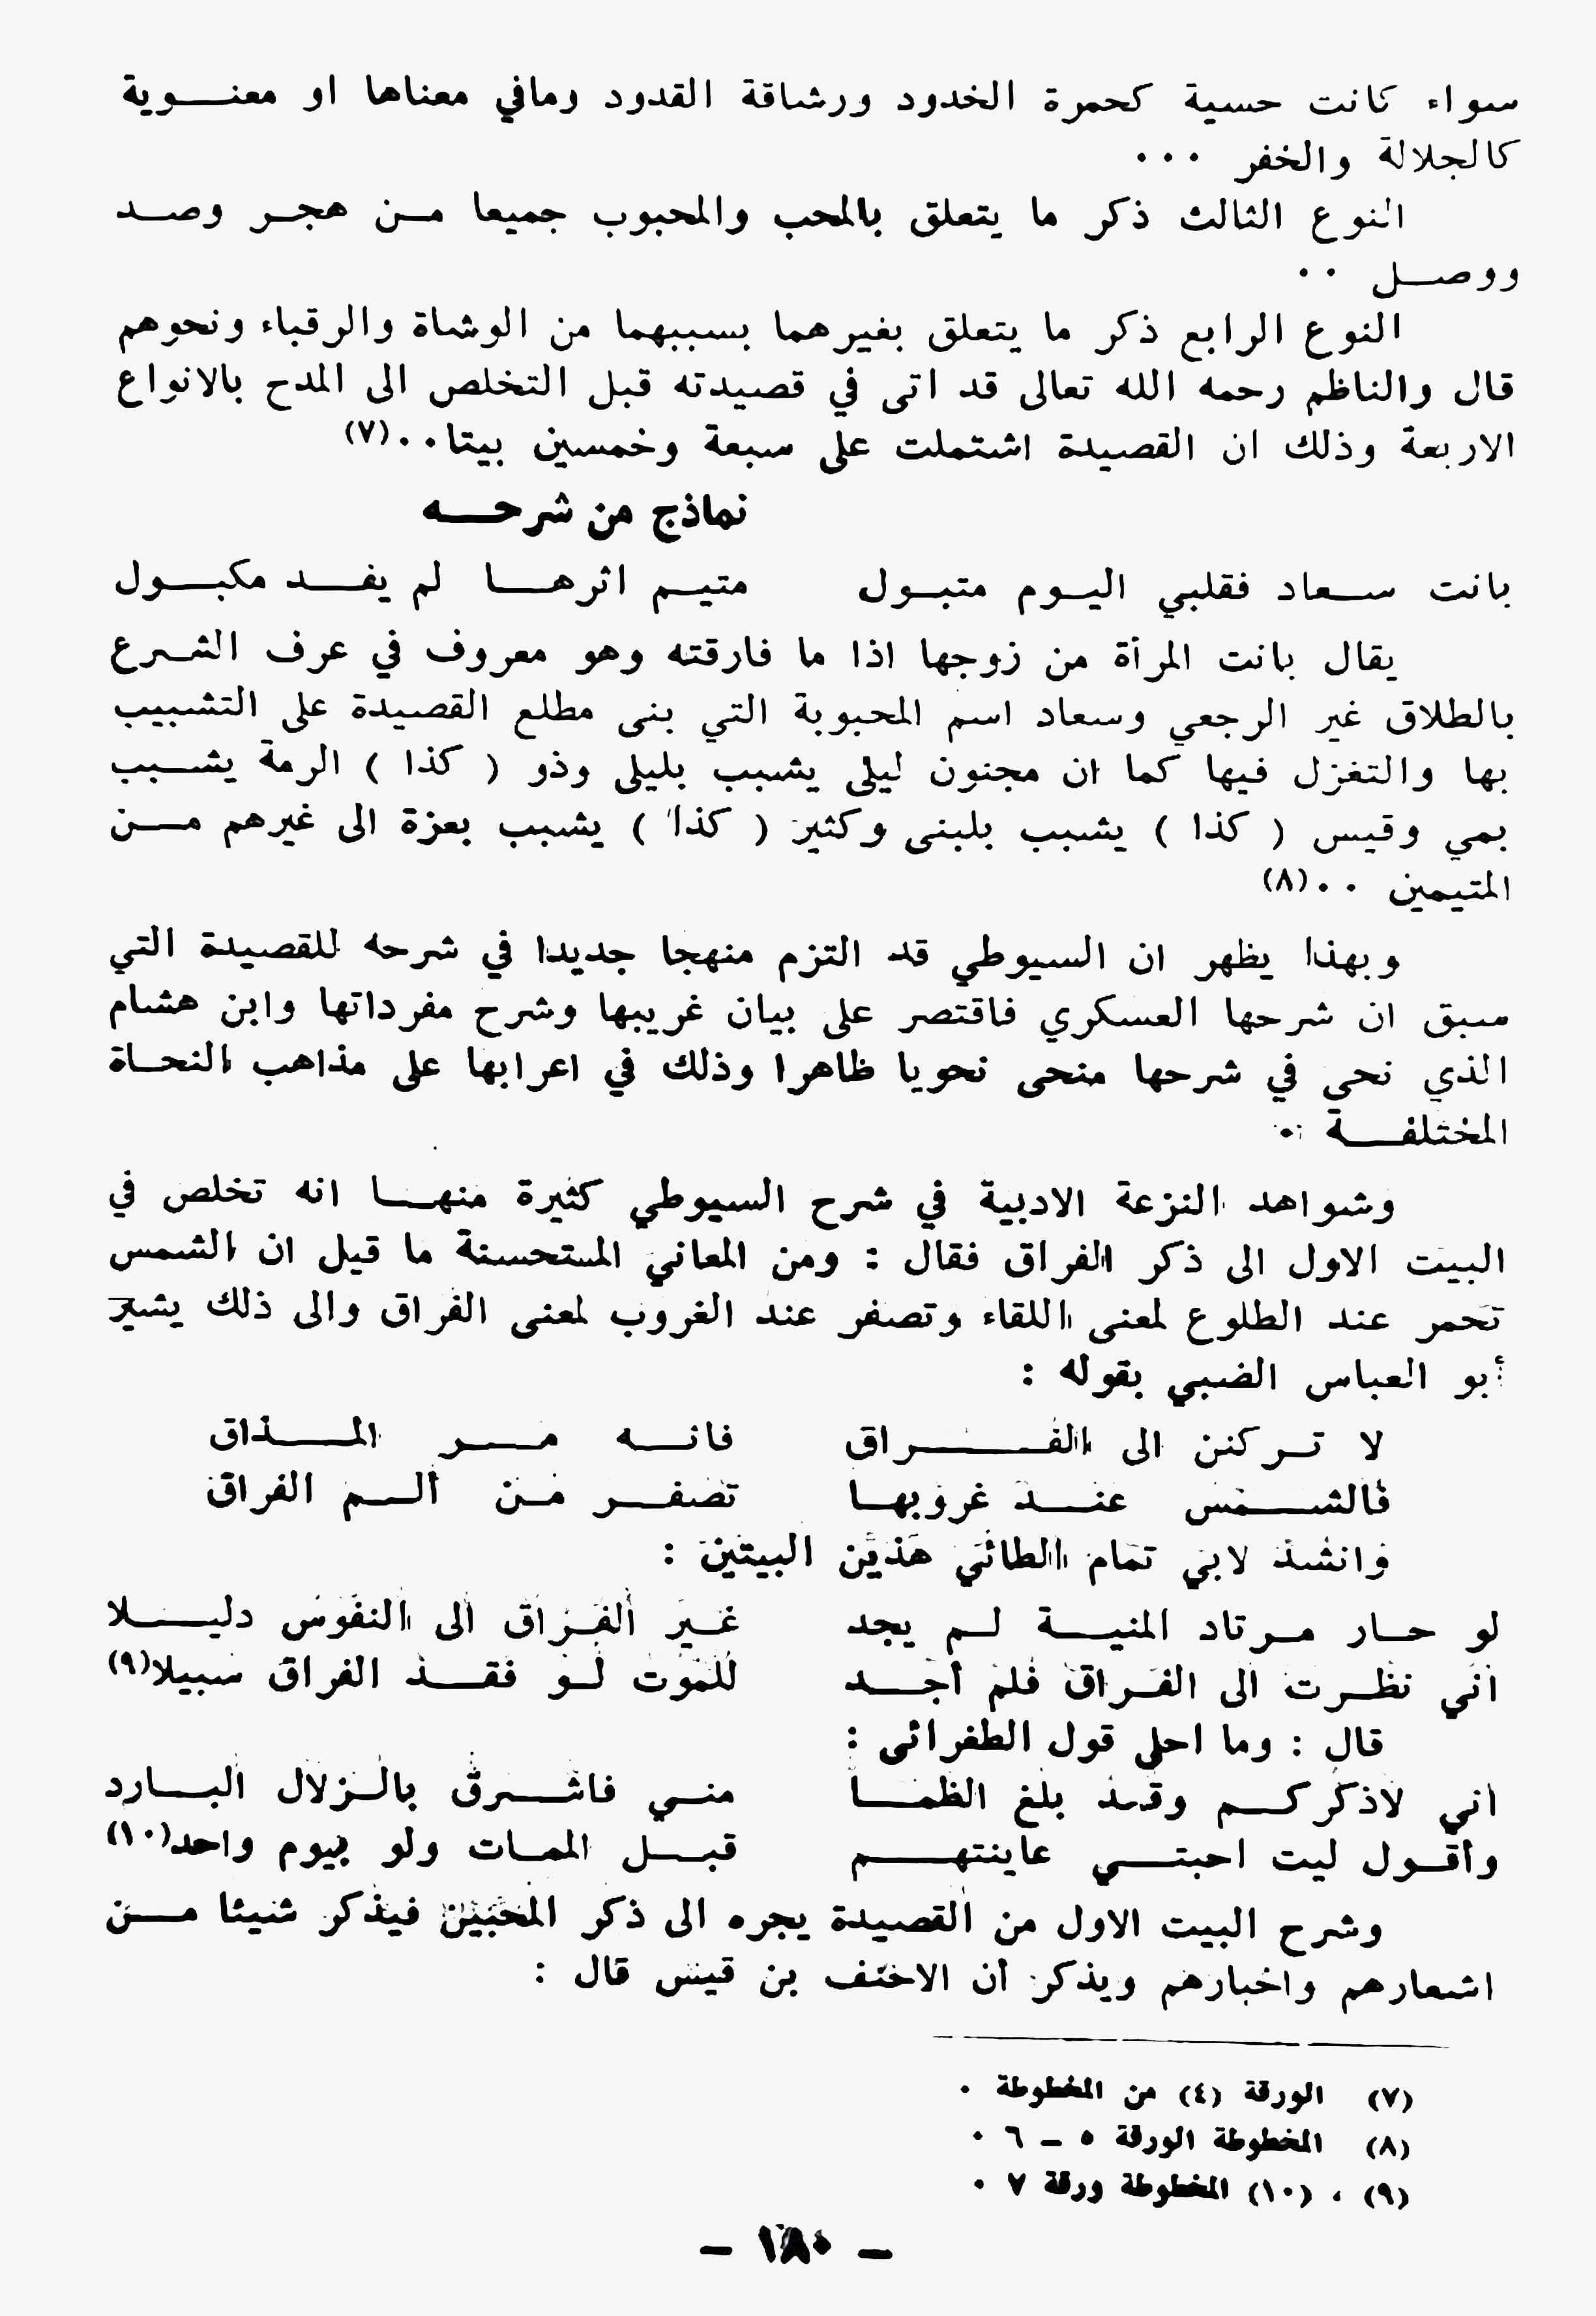 سواء كانت حسية كحمرة الخدود ورشاقة القدود ومافي معناها او معنوية
كالجلالة والخفر ...
النوع الثالث ذكر ما يتعلق بالمحب والمحبوب جميعا من هجر وصد
ووصل ..
النوع الرابع ذكر ما يتعلق بغيرهما بسببهما من الوشاة والرقباء ونحوهم
قال والناظم رحمه الله تعالى قد اتى في قصيدته قبل التخلص الى المدح بالانواع
الاربعة وذلك ان القصيدة اشتملت على سبعة وخمسين بيتا..(٧)
نماذج من شرحه
بانت سعاد فقلبي اليوم متبول متيم اثرها لم يفد مكبول
يقال بانت المرأة من زوجها اذا ما فارقته وهو معروف في عرف الشرع
بالطلاق غير الرجعي وسعاد اسم المحبوبة التي بنى مطلع القصيدة على التشبيب
بها والتغزل فيها كما ان مجنون ليلى يشبب بليلى وذو ( كذا ) الرمة يشبب
بمي وقيس ( كذا ) يشبب بلبنى وكثير ( كذا ) يشبب بعزة الى غيرهم من
المتيمين ..(٨)
وبهذا يظهر ان السيوطي قد التزم منهجا جديدا في شرحه للقصيدة التي
سبق ان شرحها العسكري فاقتصر على بيان غريبها وشرح مفرداتها وابن هشام
الذي نحى في شرحها منحى نحويا ظاهرا وذلك في اعرابها على مذاهب النحاة
المختلفة .
وشواهد النزعة الادبية في شرح السيوطي كثيرة منها انه تخلص في
البيت الاول الى ذكر الفراق فقال : ومن المعاني المستحسنة ما قيل ان الشمس
تحمر عند الطلوع لمعنى اللقاء وتصفر عند الغروب لمعنى الفراق والى ذلك يشير
أبو العباس الضبي بقوله :
لا تركنن الى الفراق فانه مر المذاق
فالشمس عند غروبها تصفر من ألم الفراق
وانشد لابي تمام الطائي هذين البيتين :
لو حار مرتاد المنية لم يجد غير الفراق الى النفوس دليلا
اني نظرت الى الفراق فلم أجد للموت لو فقد الفراق سبيلا(٩)
قال : وما احلى قول الطغرائى :
اني لاذكركم وقد بلغ الظما مني فاشرق بالزلال البارد
وأقول ليت احبتي عاينتهم قبل الممات ولو بيوم واحد(١٠)
وشرح البيت الاول من القصيدة يجره الى ذكر المحبين فيذكر شيئا من
اشعارهم واخبارهم ويذكر أن الاحنف بن قيس قال :
(٧) الورقة (٤) من المخطوطة .
(٨) المخطوطة الورقة ٥ - ٦ .
(٩) ، (١٠) المخطوطة ورقة ٧ .
- ١٨٠ -